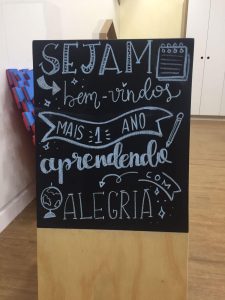 SEJAM
bem-vindos
MAIS 1 ANO
aprendendo
COM
ALEGRIA